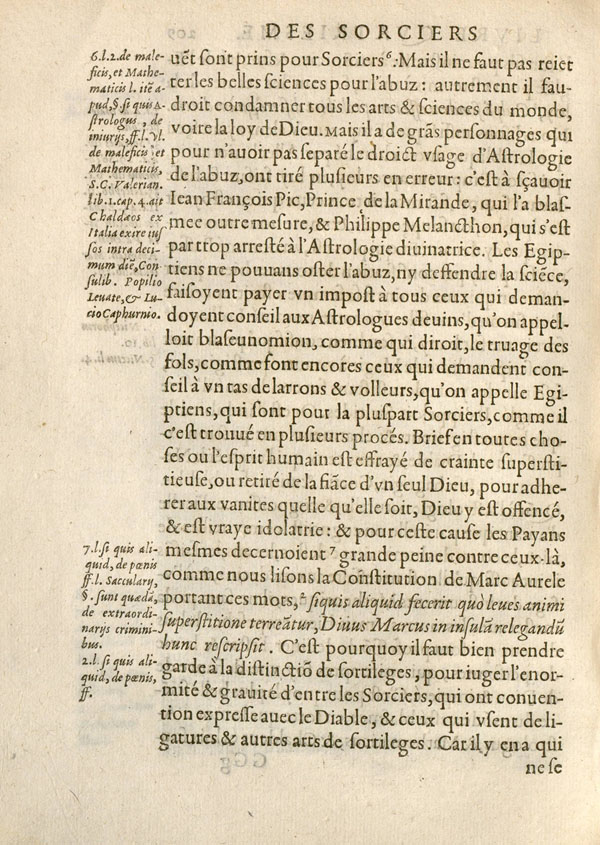 DES SORCIERS
6.l.2. de male-
ficis, et Mathe-
maticis l. itē a-
pud, §. si quis A-
strologus, de
iniurijs, ff. l. vl.
de maleficis et
Mathematicis,
S.C. Valerian.
lib. 1. cap. 4. ait
Chaldæos ex
Italia exire ius
sos intra deci-
mum diē, Con
sulib. Popilio
Leuate, & Lu-
cio Caphurnio.
uēt sont prins pour Sorciers⁶. Mais il ne faut pas reiet
ter les belles sciences pour l'abuz : autrement il fau-
droit condamner tous les arts & sciences du monde,
voire la loy de Dieu. Mais il a de grās personnages qui
pour n'auoir pas separé le droict vsage d'Astrologie
de l'abuz, ont tiré plusieurs en erreur : c'est à sçauoir
Iean François Pic, Prince de la Mirande, qui l'a blas-
mee outre mesure, & Philippe Melancthon, qui s'est
par trop arresté à l'Astrologie diuinatrice. Les Egip-
tiens ne pouuans oster l'abuz, ny deffendre la sciēce,
faisoyent payer vn impost à tous ceux qui deman-
doyent conseil aux Astrologues deuins, qu'on appel-
loit blaseunomion, comme qui diroit, le truage des
fols, comme font encores ceux qui demandent con-
seil à vn tas de larrons & volleurs, qu'on appelle Egi-
ptiens, qui sont pour la pluspart Sorciers, comme il
c'est trouué en plusieurs procés. Brief en toutes cho-
ses ou l'esprit humain est effrayé de crainte supersti-
tieuse, ou retiré de la fiāce d'vn seul Dieu, pour adhe-
rer aux vanites quelle qu'elle soit, Dieu y est offencé,
& est vraye idolatrie : & pour ceste cause les Payans
mesmes decernoient⁷ grande peine contre ceux-là,
comme nous lisons la Cōstitution de Marc Aurele
portant ces mots,² si quis aliquid fecerit quò leues animi
superstitione terreātur, Diuus Marcus in insulā relegandū
hunc rescripsit. C'est pourquoy il faut bien prendre
garde à la distinctiō de sortileges, pour iuger l'enor-
mité & grauité d'entre les Sorciers, qui ont conuen-
tion expresse auec le Diable, & ceux qui vsent de li-
gatures & autres arts de sortileges. Car il y en a qui
7.l. si quis ali-
quid, de pœnis
ff. l. Saccularij,
§. sunt quædā,
de extraordi-
narijs crimini-
bus.
2.l. si quis ali-
quid, de pœnis,
ff.
GGg
ne se